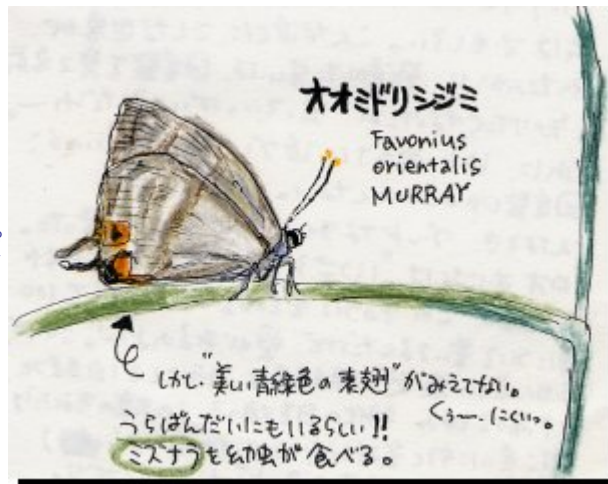 オオミドリシジミ
Favonius
orientalis
MURRAY
しかし"美しい青緑色の表翅"がみえてない。
くぅ〜、にくいっ。
うらばんだいにもいるらしい!!
ミズナラも幼虫が食べる。